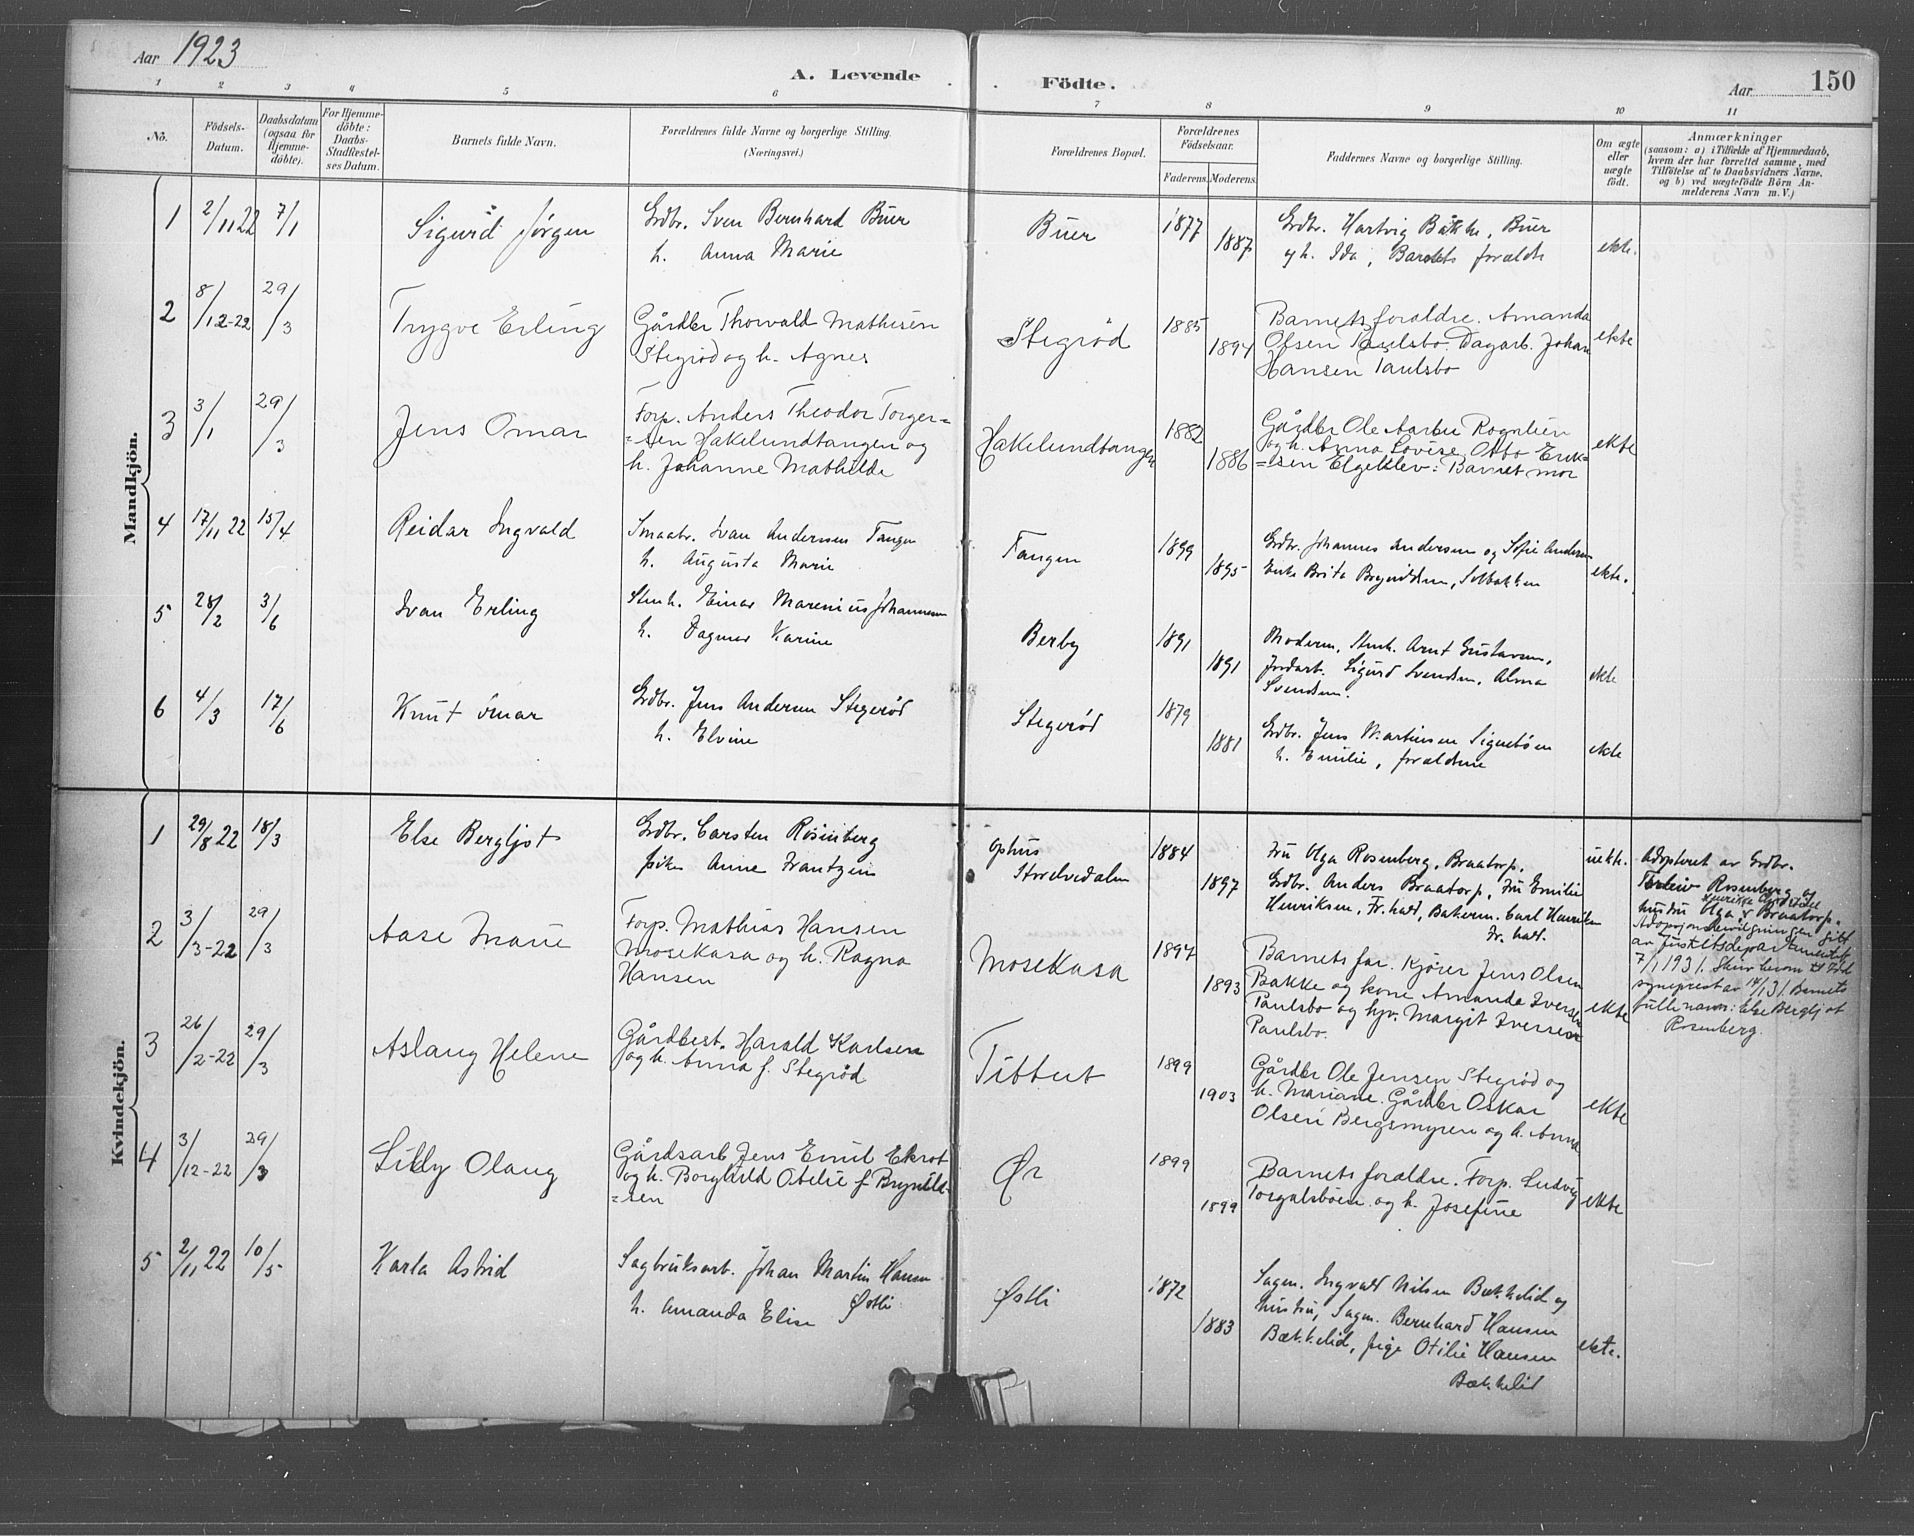 Aar 1923
A. Levende Födte.
Aar 150
1 2 3 4 5 6 7 8 9 10 11
No.
Födsels-Datum.
Daabsdatum (ogsaa for Hjemme-döbte).
For Hjemme-döbte: Daabs-Stadfæstel-ses Datum.
Barnets fulde Navn.
Forældrenes fulde Navne og borgerlige Stilling.
(Næringsvei.)
Forældrenes Bopæl.
Forældrenes Födselsaar.
Faderens. Moderens.
Faddernes Navne og borgerlige Stilling.
Om ægte eller uægte födt.
Anmærkninger
(saasom: a) i Tilfælde af Hjemmedaab,
hvem der har forrettet samme, med
Tilföielse af to Daabsvidners Navne,
og b) ved uægtefödte Börn An-
melderens Navn m. V.)
Mandkjön.
1 2/11 22 7/1 Sigurd Jørgen
Grdbr. Sven Bernhard Buer
h. Anna Marie
Buer 1877 1887
Grdbr. Hartvig Bakke, Buer
og h. Ida, Barnets foreldre
ekte.
2 8/12-22 29/3 Trygve Erling
Gårdbr Thorvald Mathisen
Stegrød og h. Agnes
Stegrød 1885 1894
Barnets foreldre. Amanda
Olsen Paulsbo. Dagarb. Johan
Hansen Paulsbo
ekte
3 3/1 29/3 Jens Omar
Forp. Anders Theodor Torger=
=sen Hakelundtangen og
h. Johanne Mathilde
Hakelundtangen 1882 1886
Gårdbr Ole Aarbu Rognlien
og h. Anna Lovise Otto Erik=
=sen Elgeklev: Barnets mor
ekte
4 17/11 22 15/4 Reidar Ingvald
Smaabr. Ivan Andersen Tangen
h. Augusta Marie
Tangen 1899 1895
Grdbr. Johannes Andersen og Sofie Andersen
Enke Brita Brynildsen, Solbakken
ekte.
5 28/2 3/6 Ivan Erling
Stenh. Einar Marenius Johannesen
h. Dagmar Karine
Berby 1891 1891
Moderen, Stenh. Arnt Gustavsen,
Jordarb. Sigurd Svendsen, Alma
Svendsen.
ekte
6 4/3 17/6 Knut Omar
Grdbr. Jens Andersen Stegerød
h. Elvine
Stegerød 1879 1881
Grdbr. Jens Martinsen Signebøen
h. Emilie, foreldrene
ekte
Kvindekjön.
1 29/8 22 18/3 Else Bergljot
Grdbr. Carsten Rosenberg
pike Anne Frantzen
Ophus
Storelvedalen 1884 1897
Fru Olga Rosenberg, Braatorp,
Grdbr. Anders Braatorp, Fru Emilie
Henriksen, Fr.hald, Bakerm. Carl Henriksen
Fr.hald.
uekte.
Adopteret av Grdbr.
Torleiv Rosenberg og
hustru Olga Braatorp.
Adopsjonsbevilgningen gitt
av Justitsdepartementet
7/1 1931. Skriv herom til
sogneprest av 14/1 31. Barnets
fulle navn: Else Bergljot
Rosenberg.
2 3/3-22 29/3 Aase Marie
Forp. Mathias Hansen
Mosekasa og h. Ragna
Hansen
Mosekasa 1894 1893
Barnets far. Kjører Jens Olsen
Bakke og kone Amanda Iversen
Paulsbo og hpr. Margit Iversen
Paulsbo.
ekte
3 26/2-22 29/3 Aslaug Helene
Gårdbest. Harald Karlsen
og h. Anna f. Stegrød
Tittut 1899 1903
Gårdbr Ole Jensen Stegrød og
h. Mariane. Gårdbr Oskar
Olsen Bergsmyren og h. Anna
ekte
4 3/12-22 29/3 Lilly Olaug
Gårdsarb Jens Emil Ekrot
og h. Borghild Otelie f Brynild=
=sen
Ør 1899 1899
Barnets foreldre. Forp. Ludvig
Torgalsbøen og h. Josefine
ekte
5 2/11 22 10/5 Karla Astrid
Sagbruksarb. Johan Martin Hansen
h. Amanda Elise Østli
Østli 1872 1883
Sagm. Ingvald Nilsen Bækkelid og
hustru, Sagm. Bernhard Hansen
Bækkelid, pige Otilie Hansen
Bækkelid
ekte.